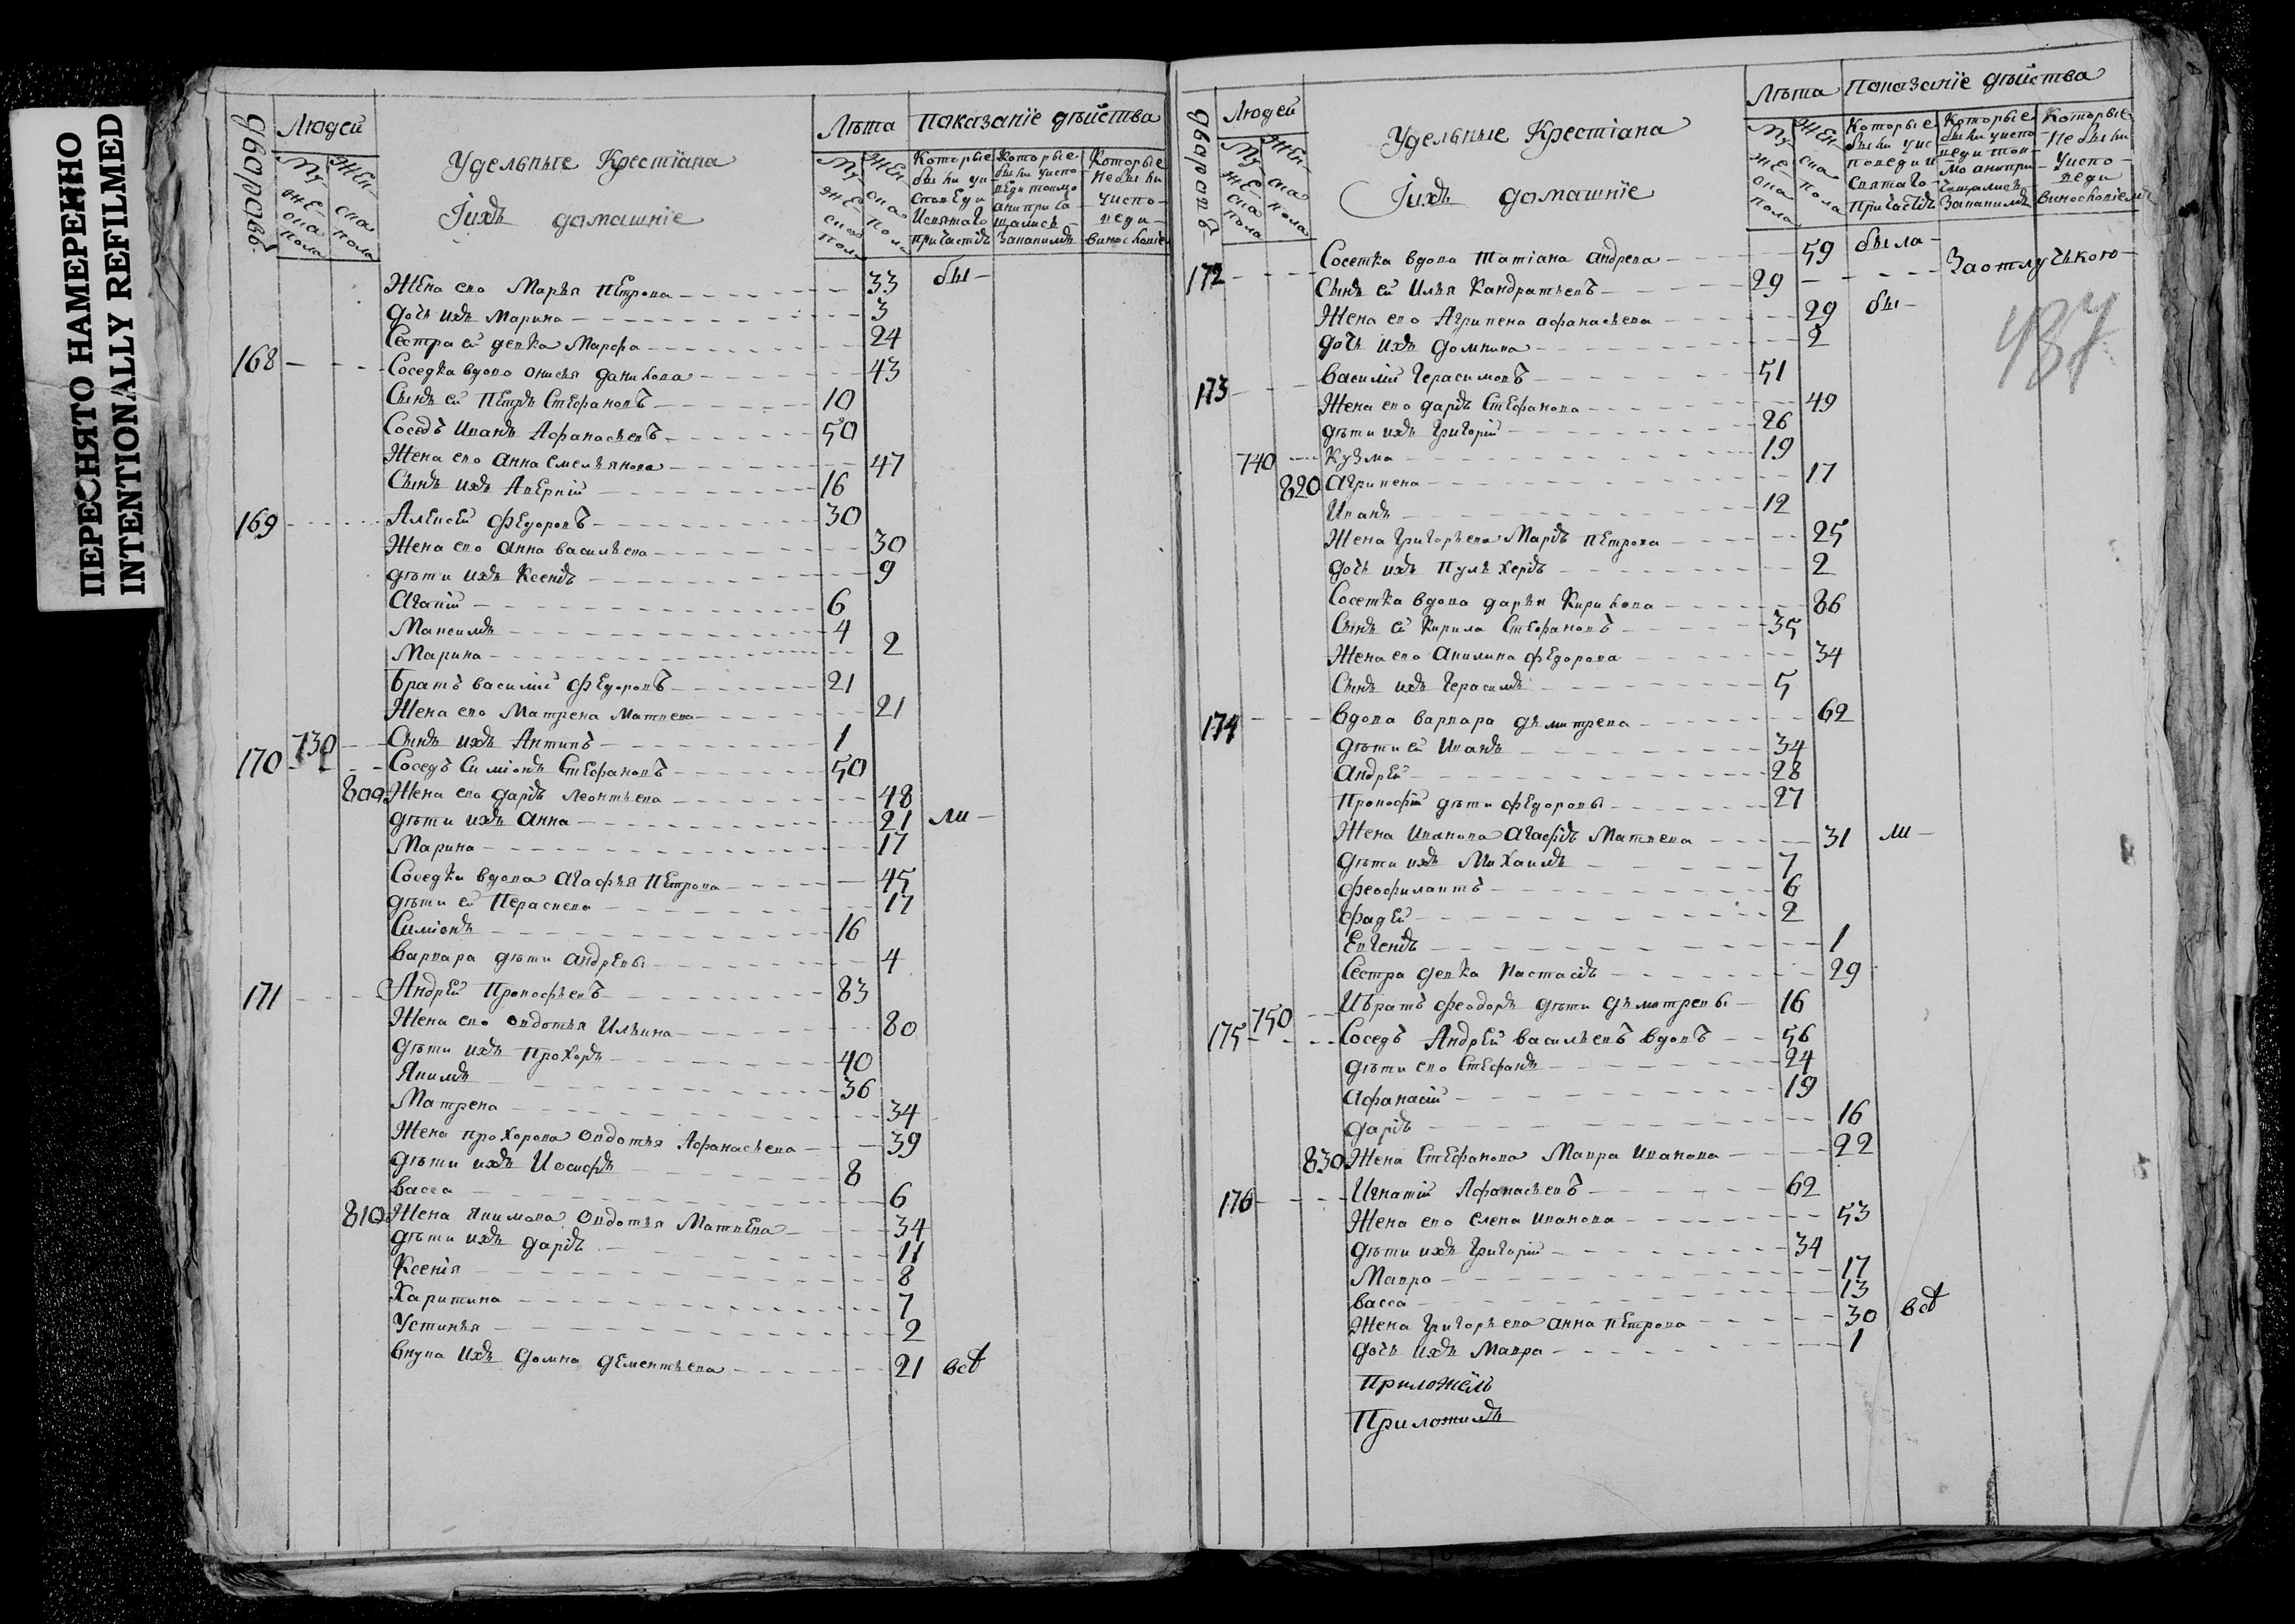 ПЕРЕСНЯТО НАМЕРЕННО
INTENTIONALLY REFILMED
дворовъ
Людей
Мужеска пола
Женска пола
Удельные Крестіана
Іихъ домашніе
Лѣта
Мужеска пола
Женска пола
Показаніе дѣйства
Которые были уисповеди исвятаго причастія
Которые были уисповеди токмо анипричащались
Которые небыли уисповеди
Жена ево Марья Петрова 33 бы
дочь ихъ Марина 3
Сестра ей девка Марфа 24
168 Соседка вдова онисья данилова 43
Сынъ ей Петръ Стефановъ 10
Соседъ Иванъ Афанасьевъ 50
Жена ево Анна Емельянова 47
Сынъ ихъ Аверкій 16
169 Алексей Федоровъ 30
Жена ево Анна васильева 30
дѣти ихъ Ксенія 9
Агапій 6
Максимъ 4
Марина 2
братъ василій Федоровъ 21
Жена ево Матрена Матвева 21
730 Сынъ ихъ Антипъ 1
170 Соседъ Симіонъ Стефановъ 50
800 Жена ево дарія леонтьева 48
дѣти ихъ Анна 21 ли
Марина 17
Соседка вдова Агафья Петрова 45
дѣти ей Параскева 17
Симіонъ 16
варвара дѣти андревы 4
171 Андрей Прокофьевъ 83
Жена ево овдотья Ильина 80
дѣти ихъ Прохоръ 40
Якимъ 36
Матрена 34
Жена прохорова овдотья Афанасьева 39
дѣти ихъ Иосифъ 8
васса 6
810 Жена якимова овдотья Матвева 34
дѣти ихъ дарія 11
Ксенія 8
Харитина 7
Устинья 2
внука ихъ домна дементьева 21 всѣ
дворовъ
Людей
Мужеска пола
Женска пола
Удельные Крестіана
Іихъ домашніе
Лѣта
Мужеска пола
Женска пола
Показаніе дѣйства
Которые были уисповеди и святаго причастія
Которые были уисповеди токмо анипричащались
Которые небыли уисповеди
Сосетка вдова татіана андрева 59 была
172 Сынъ ей Илья Кандратьевъ 29 Заотлучькою
Жена ево Агрипена афанасьева 29 бы
дочь ихъ домнина 2
437
173 василій Герасимовъ 51
Жена ево дарія Стефанова 49
дѣти ихъ Григорій 26
740 Кузма 19
820 Агрипена 17
Иванъ 12
Жена Григорьева Марія Петрова 25
дочь ихъ Пульхерія 2
Сосетка вдова дарья Кирилова 86
Сынъ ей Кирила Стефановъ 35
Жена ево Акилина Федорова 34
Сынъ ихъ Герасимъ 5
174 вдова варвара дьмитрева 62
дѣти ей Иванъ 34
андрей 28
Прокофій дѣти федоровы 27
Жена Иванова Агафія Матвева 31 ли
дѣти ихъ Михаилъ 7
феофилактъ 6
фадей 2
Евгенія 1
Сестра девка Настасія 29
750 Ибратъ феодоръ дѣти дьмитревы 16
175 Соседъ Андрей васильевъ вдовъ 56
дѣти ево Стефанъ 24
афанасій 19
дарія 16
830 Жена Стефанова Мавра Иванова 22
176 Игнатій Афанасьевъ 62
Жена ево Елена Иванова 53
дѣти ихъ Григорій 34
Мавра 17
васса 13
Жена Григорьева анна Петрова 30 всѣ
дочь ихъ Мавра 1
Приложилъ